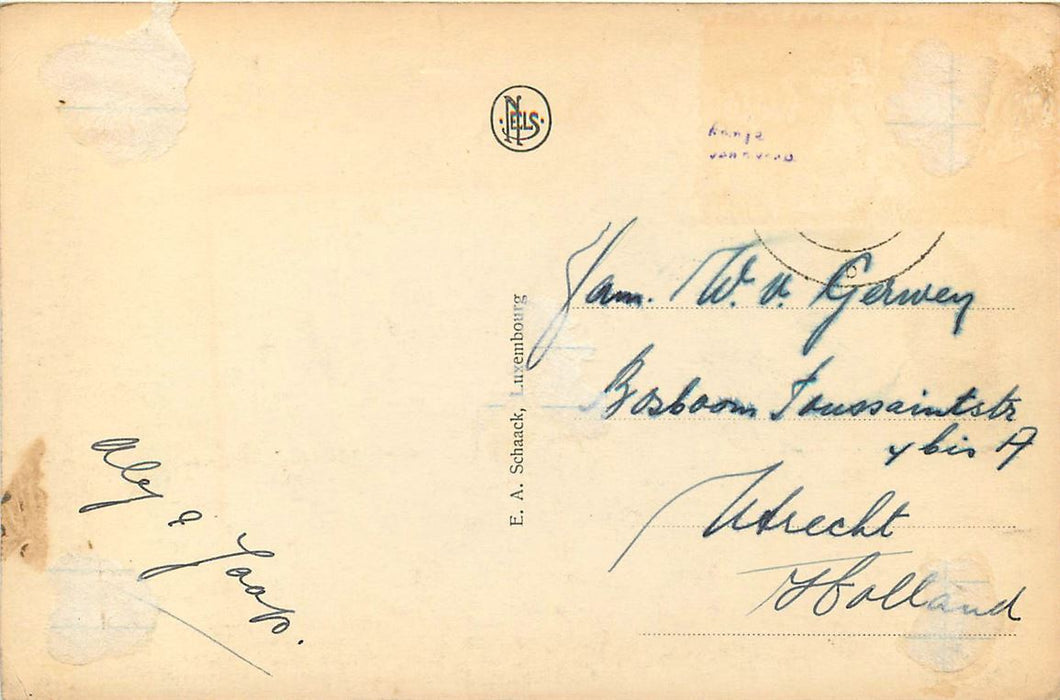 NELS
Fam. W. v. Gerwen
Bosboom Toussaintstr
bis A
Utrecht
Holland
E. A. Schaack, Luxembourg
Aly & Jaap.